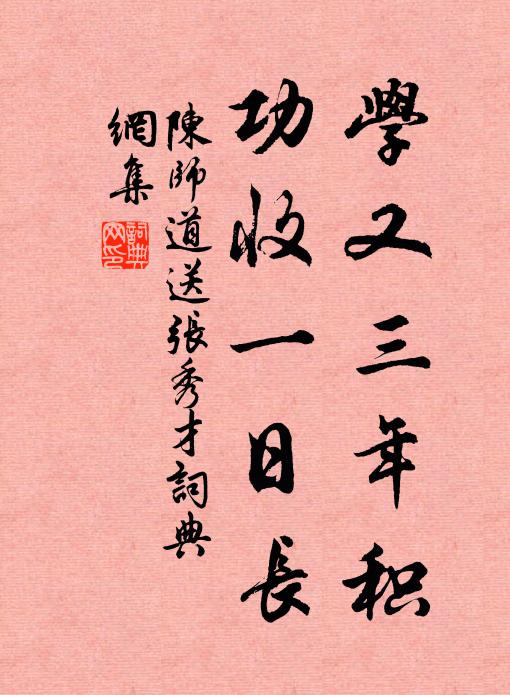 學又三年积
功收一日長
陳師道送張秀才詞典
網集
詞典
网印